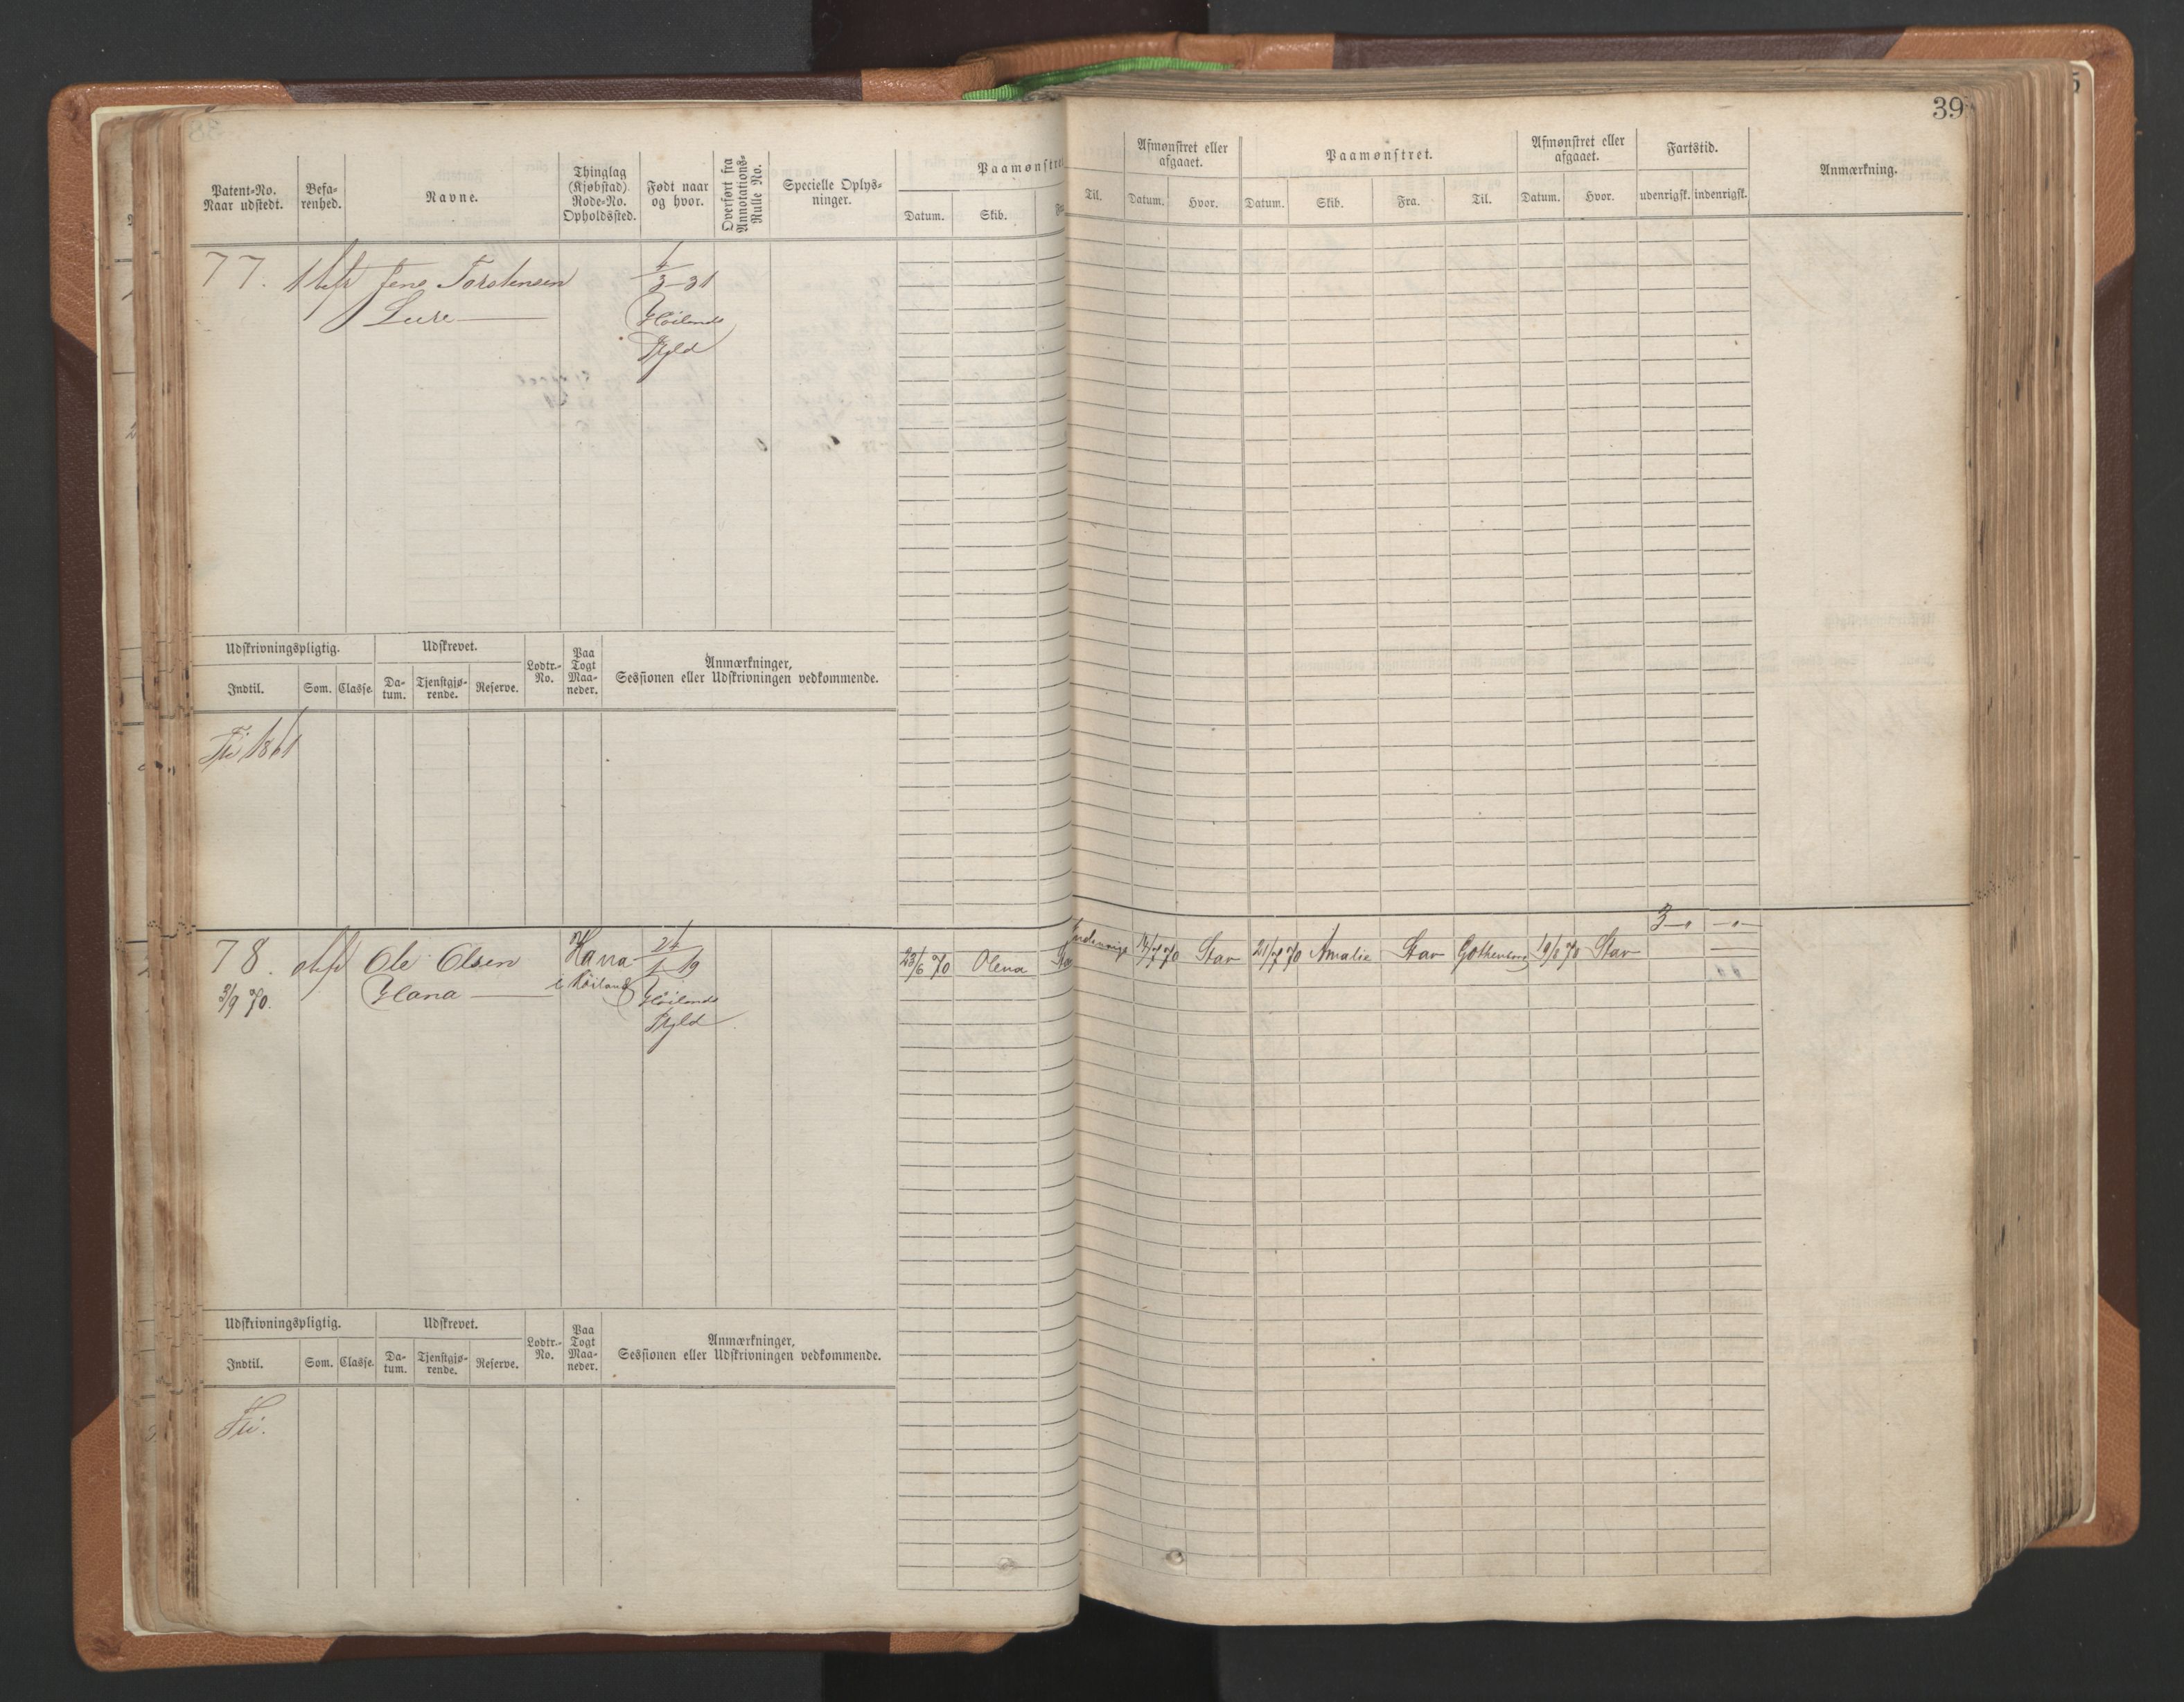 39
Patent-No.
Naar udstedt.
Befa-
renhed.
Navne.
Thinglag
(Kjøbstad)
Rode-No.
Opholdssted.
Født naar
og hvor.
Overført fra
Annotations-
Rulle No.
Specielle Oplys-
ninger.
Paamønstret
Datum. Skib.
Til.
Afmønstret eller
afgaaet.
Datum. Hvor.
Paamønstret.
Datum. Skib. Fra. Til.
Afmønstret eller
afgaaet.
Datum. Hvor.
Fartstid.
udenrigsk. indenrigsk.
Anmærkning.
77. Jens Torstensen
Lure
3-31
Høilands
Skgld
Udskrivningspligtig. Udskrevet.
Lodtr.-
No.
Paa
Togt
Maa-
neder.
Anmærkninger,
Sessionen eller Udskrivningen vedkommende.
Indtil. Som. Classe.
Da-
tum.
Tjenstgjø-
rende.
Reserve.
Fri 1861
78. Ole Olsen Hana 24/1 19
3/9 70. Hana
Høilands
Skgld
23/6 70 Olena
Indenrigs 14/7 70 Stav 21/7 70 Amalie Stav Gothenborg 19/8 70 Stav
3
Udskrivningspligtig. Udskrevet.
Lodtr.-
No.
Paa
Togt
Maa-
neder.
Anmærkninger,
Sessionen eller Udskrivningen vedkommende.
Indtil. Som. Classe.
Da-
tum.
Tjenstgjø-
rende.
Reserve.
Fri.